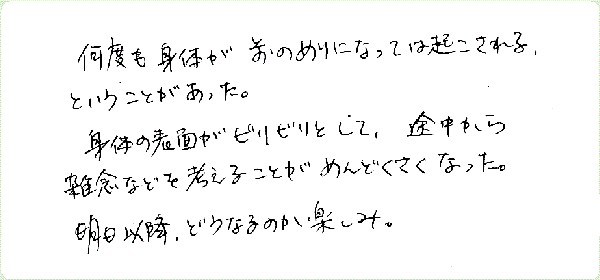 何度も身体が前のめりになっては起こされる、
ということがあった。
身体の表面がビリビリとして、途中から
雑念などを考えることがめんどくさくなった。
明日以降、どうなるのか楽しみ。